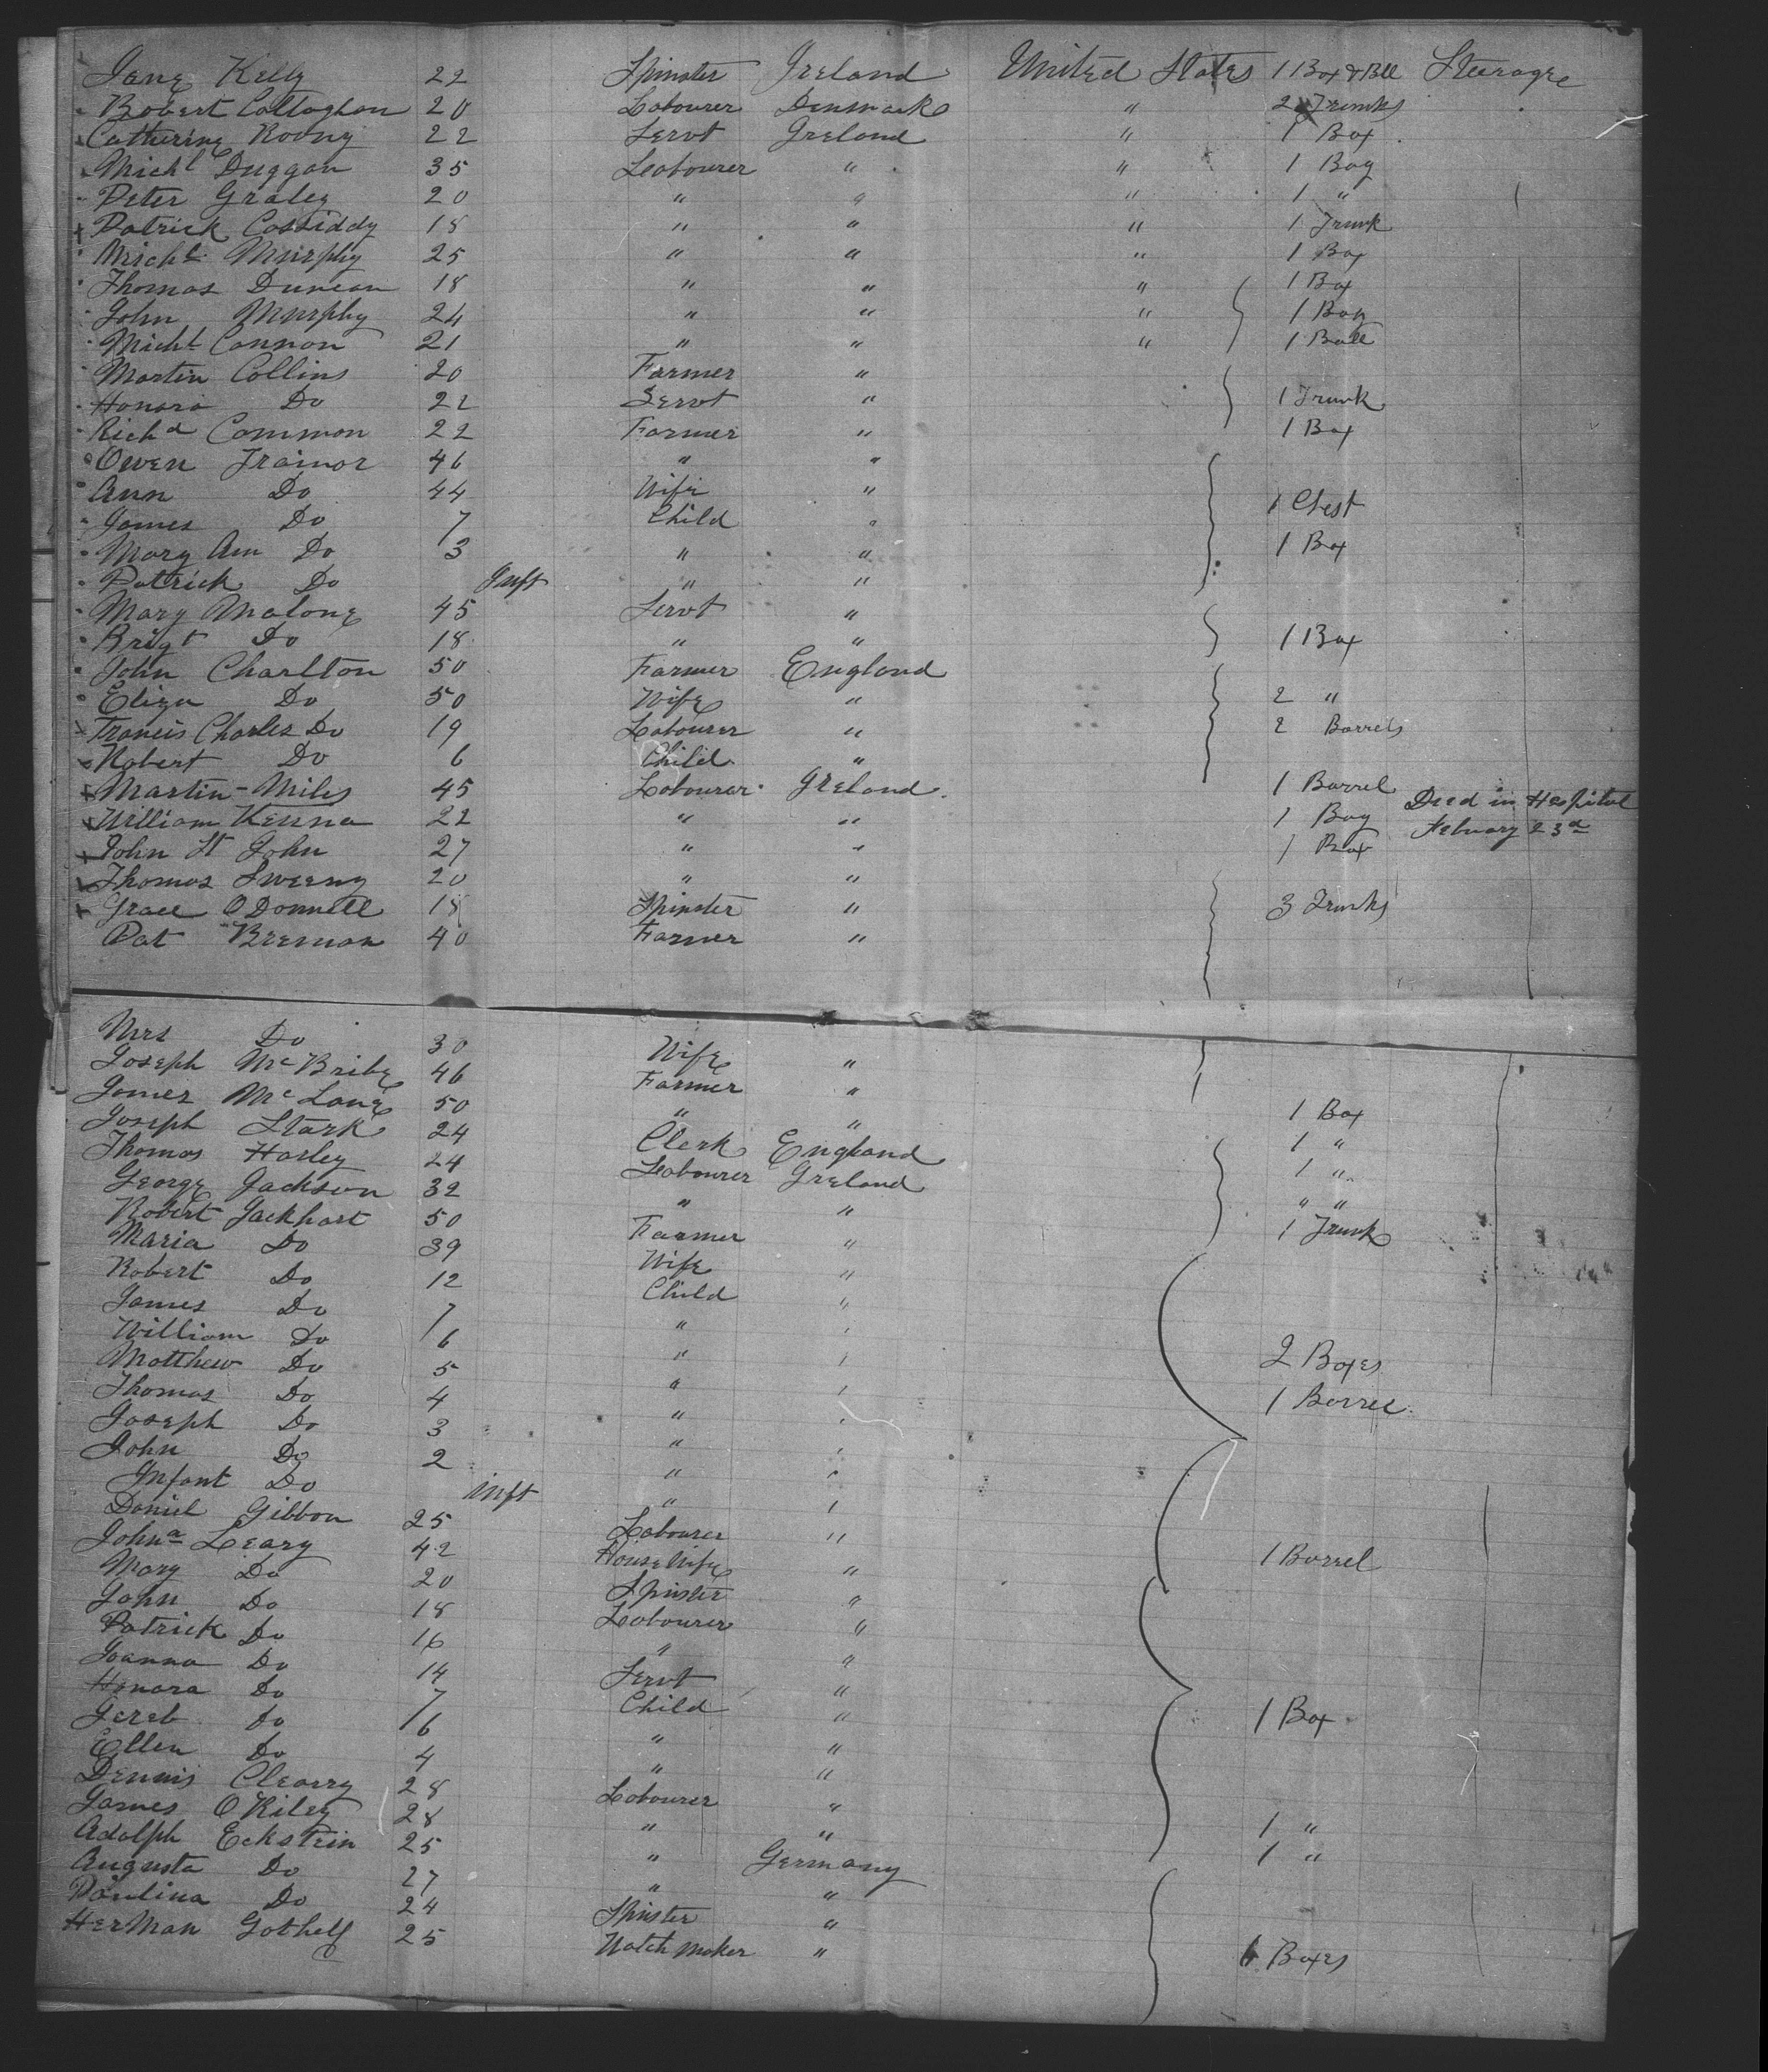 Jane Kelly 22 Spinster Ireland United States 1 Box & Bll Steerage
Robert Callaghan 20 Labourer Denmark " 2 Trunks
Catherine Roony 22 Servt Ireland " 1 Box
Michl Duggan 35 Labourer " " 1 Bag
Peter Graley 20 " " " 1 "
Patrick Cassiddy 18 " " " 1 Trunk
Michl Murphy 25 " " " 1 Box
Thomas Duncan 18 " " " 1 Box
John Murphy 24 " " " 1 Bag
Michl Cannon 21 " " " 1 Ball
Martin Collins 20 Farmer "
Honora Do 22 Servt " 1 Trunk
Richd Common 22 Farmer " 1 Box
Owen Trainor 46 " "
Ann Do 44 Wife " 1 Chest
James Do 7 Child "
Mary Ann Do 3 " " 1 Box
Patrick Do Inft " "
Mary Malone 45 Servt "
Brigt Do 18 " " 1 Box
John Charlton 50 Farmer England
Eliza Do 50 Wife " 2 "
Francis Charles Do 19 Labourer " 2 Barrels
Robert Do 6 Child "
Martin Miles 45 Labourer Ireland 1 Barrel Died in Hospital
William Kenna 22 " " 1 Bag Febuary 23d
John St John 27 " " 1 Box
Thomas Sweeny 20 " "
Grace O Donnell 18 Spinster " 3 Trunks
Pat Brennan 40 Farmer "
Mrs Do 30 Wife "
Joseph McBride 46 Farmer "
James McLane 50 " " 1 Box
Joseph Stark 24 Clerk England 1 "
Thomas Harley 24 Labourer Ireland 1 "
George Jackson 32 " " " "
Robert Jackhart 50 Farmer " 1 Trunk
Maria Do 39 Wife "
Robert Do 12 Child "
James Do 7 " "
William Do 6 " "
Matthew Do 5 " " 2 Boxes
Thomas Do 4 " " 1 Barrel
Joseph Do 3 " "
John Do 2 " "
Infant Do inft " "
Daniel Gibbon 25 Labourer "
Johna Leary 42 House Wife " 1 Barrel
Mary Do 20 Spinster "
John Do 18 Labourer "
Patrick Do 16 " "
Joanna Do 14 Servt "
Honora Do 7 Child "
Jereb Do 6 " " 1 Box
Ellen Do 4 " "
Dennis Clearry 28 Labourer "
James O Riley 28 " " 1 "
Adolph Eckstein 25 " Germany 1 "
Augusta Do 27 " "
Paulina Do 24 Spinster "
Herman Gothelf 25 Watch Maker " 6 Boxes